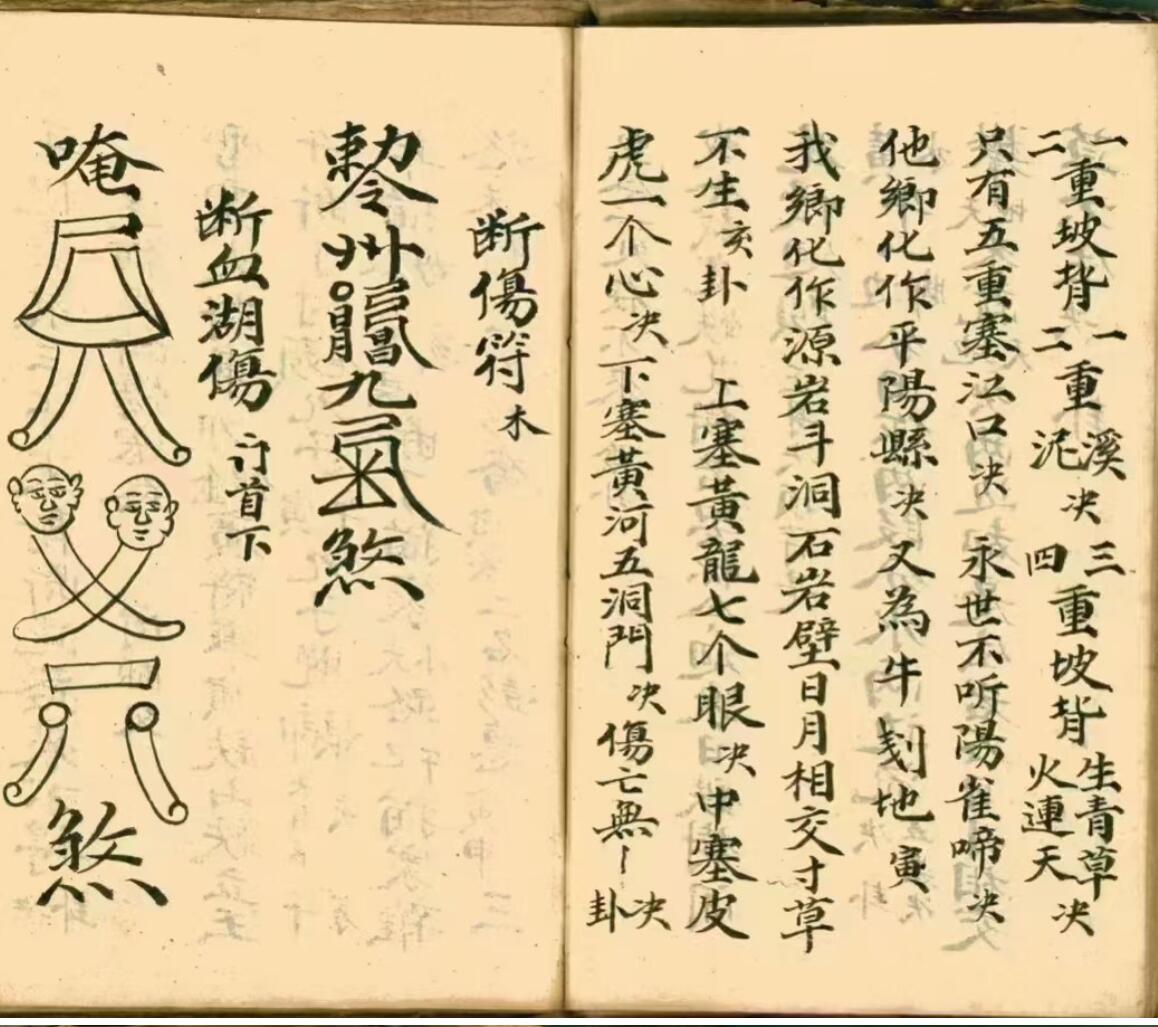 一二重坡背 一二重溪泥决 三四重坡背 生青草火連天决
只有五重塞江口决 永世不听陽雀啼决
他鄉化作平陽縣决 又為牛刬地 寅
我鄉化作源岩斗洞石岩壁日月相交寸草
不生亥卦 上塞黃龍七个眼决中塞皮
虎一个心决下塞黃河五洞門决傷亡無 决卦
断傷符 木
勅令 九 煞
断血湖傷 首下
唵 煞